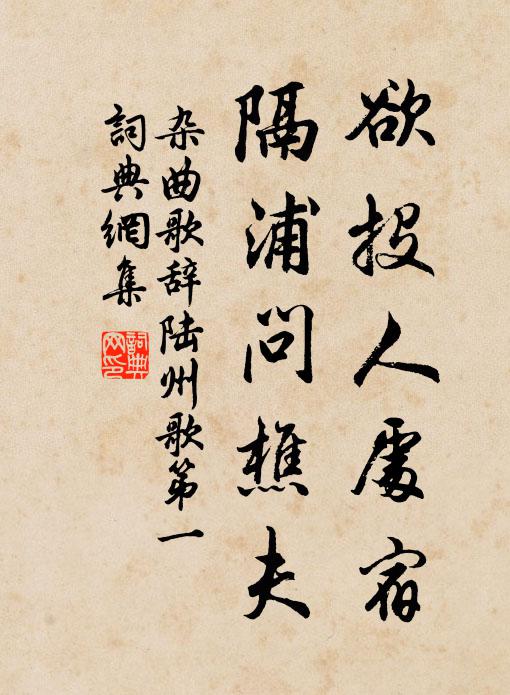 欲投人處宿
隔浦問樵夫
杂曲歌辞陆州歌第一
詞典網集
詞典網印